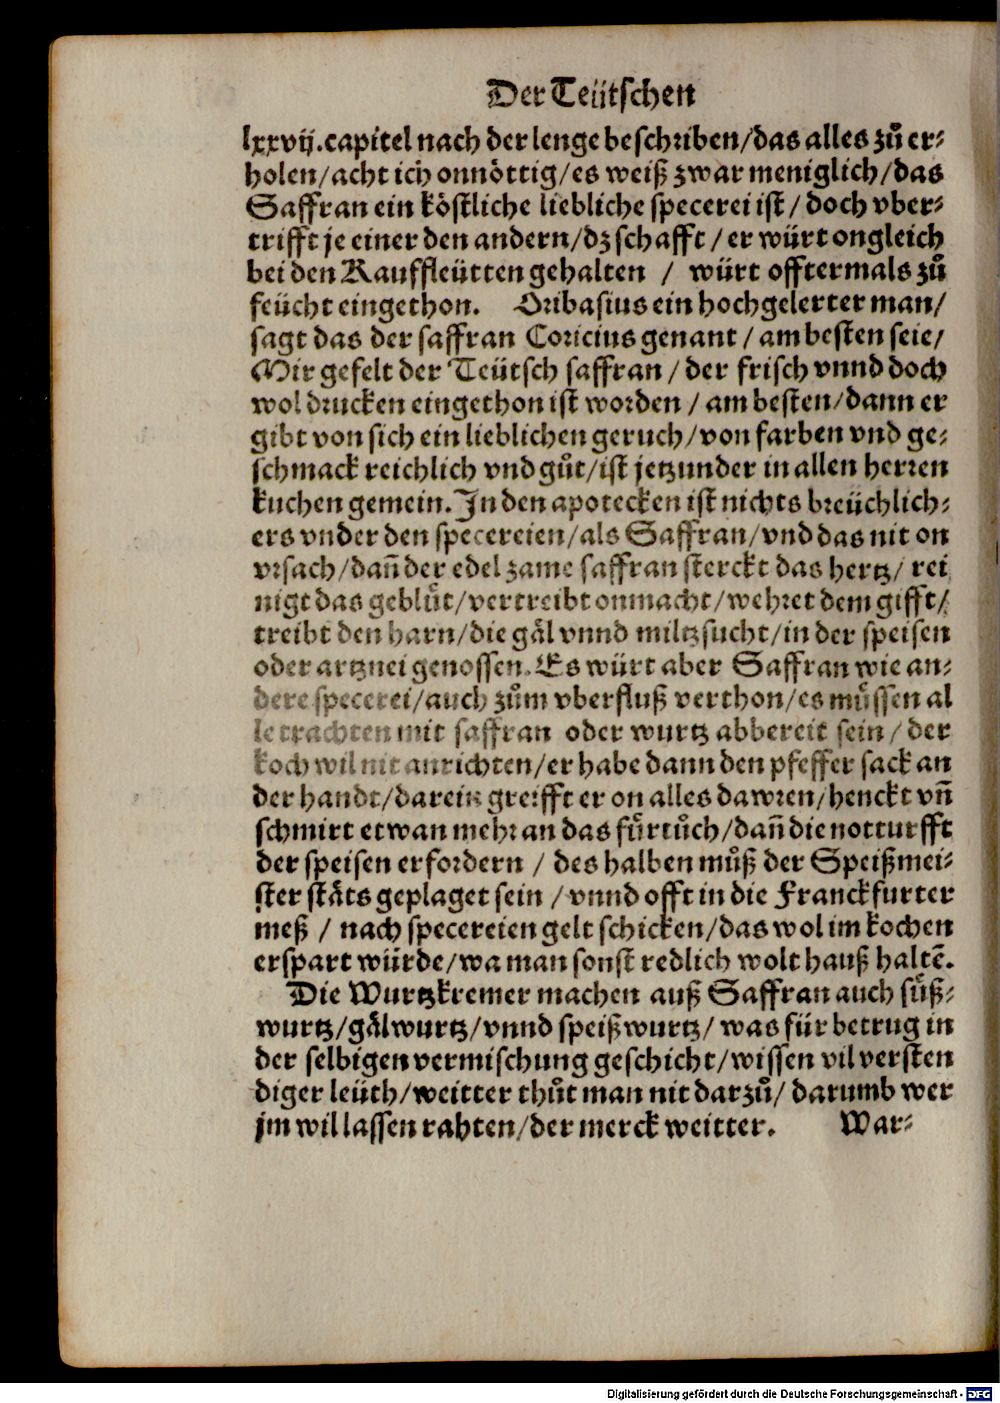 Der Teütschen
lxxvij.capitel nach der lenge beschriben/das alles zů er⸗
holen/acht ich onnöttig/es weiß zwar meniglich/das
Saffran ein köstliche liebliche specerei ist/ doch vber⸗
trifft je einer den andern/dz schafft / er würt ongleich
bei den Kauffleütten gehalten / würt offtermals zů
feücht eingethon. Oribasius ein hochgelerter man/
sagt das der saffran Coricius genant / am besten seie/
Mir gefelt der Teütsch saffran / der frisch vnnd doch
wol drucken eingethon ist worden / am besten/dann er
gibt von sich ein lieblichen geruch/von farben vnd ge⸗
schmack reichlich vnd gůt/ist jetzunder in allen herren
kuchen gemein. In den apotecken ist nichts breüchlich⸗
ers vnder den specereien/als Saffran/vnd das nit on
vrsach/dañ der edel zame saffran sterckt das hertz/ rei
nigt das geblůt/vertreibt onmacht/wehret dem gifft/
treibt den harn/die gål vnnd miltzsucht/in der speisen
oder artznei genossen. Es würt aber Saffran wie an⸗
dere specerei/auch zům vberfluß verthon/es müssen al
le trachten mit saffran oder wurtz abbereit sein / der
koch wil nit anrichten/er habe dann den pfeffer sack an
der handt/darein greifft er on alles dawren/henckt vñ
schmirt etwan mehr an das fürtůch/dañ die notturfft
der speisen erfordern / des halben můß der Speißmei⸗
ster ståts geplaget sein / vnnd offt in die Franckfurter
meß / nach specereien gelt schicken/das wol im kochen
erspart würde/wa man sonst redlich wolt hauß haltẽ.
Die Wurtzkremer machen auß Saffran auch süß⸗
wurtz/gålwurtz/vnnd speißwurtz/ was für betrug in
der selbigen vermischung geschicht/wissen vil versten
diger leüth/weitter thůt man nit darzů/ darumb wer
jm wil lassen rahten/der merck weitter. War⸗
Digitalisierung gefördert durch die Deutsche Forschungsgemeinschaft - DFG